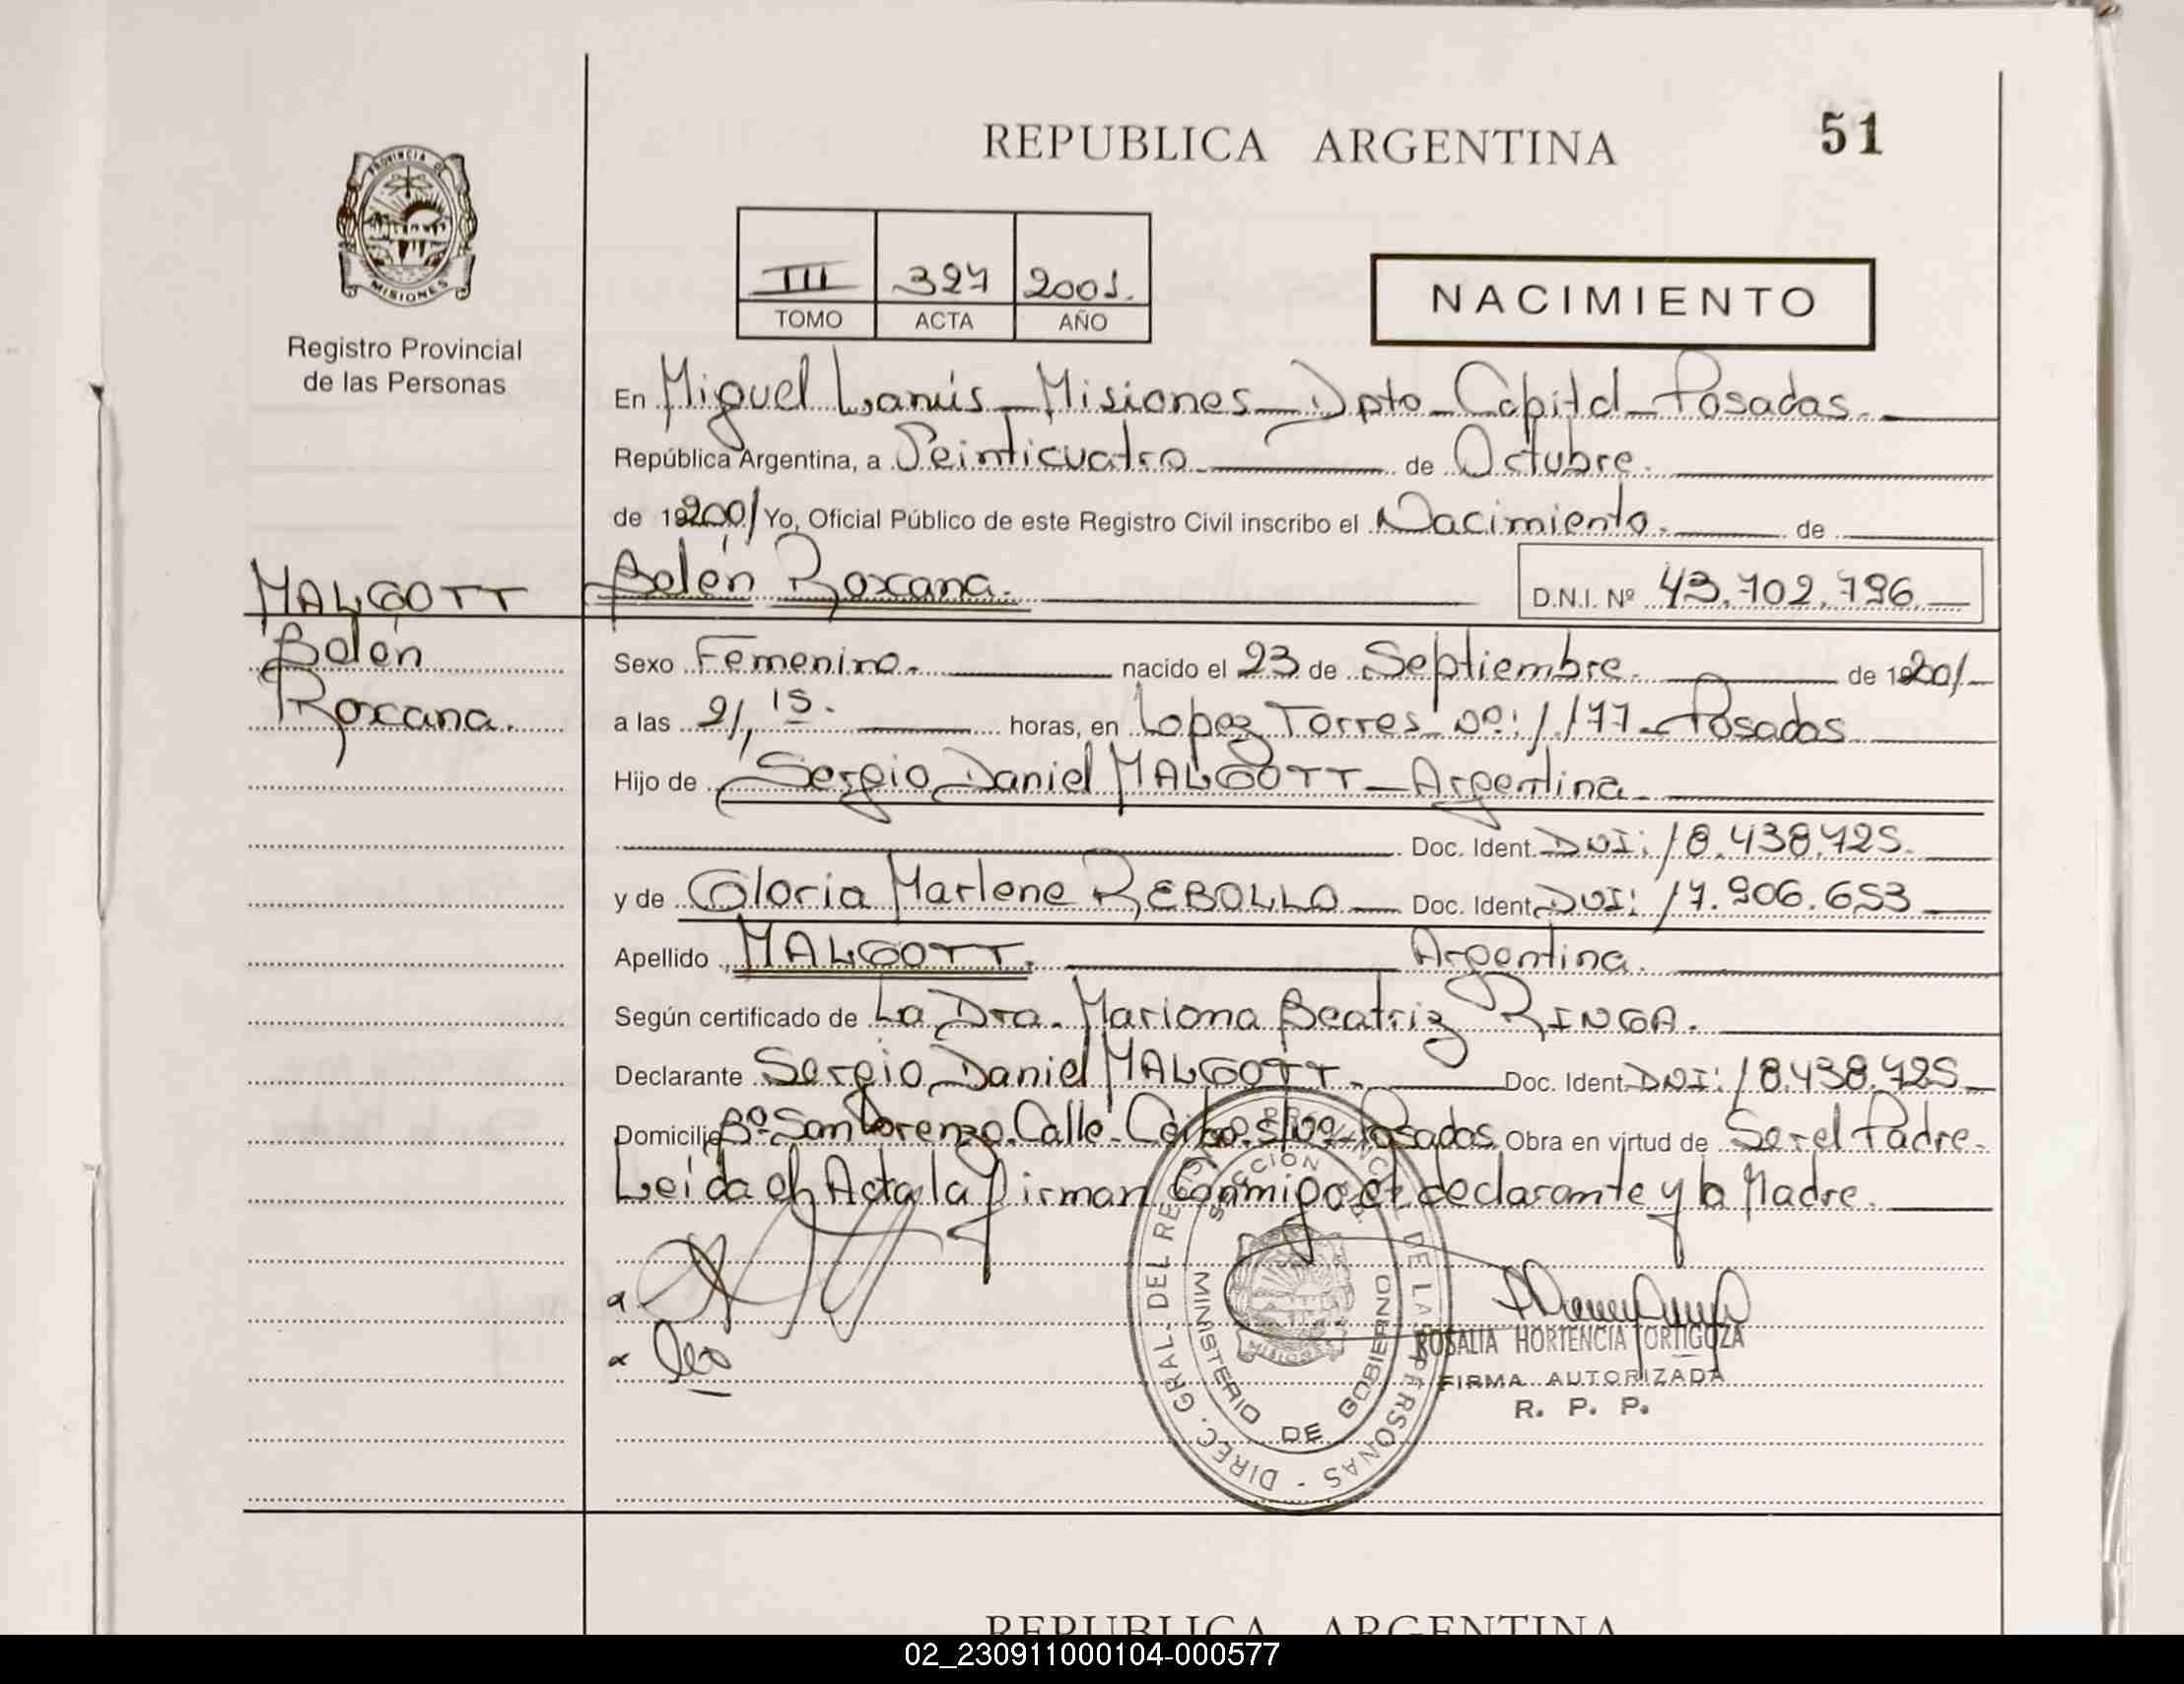 REPUBLICA ARGENTINA
51
PROVINCIA DE
MISIONES
Registro Provincial
de las Personas
III 327 2001.
TOMO ACTA AÑO
NACIMIENTO
En Miguel Lanús - Misiones - Dpto - Capital - Posadas.
República Argentina, a Veinticuatro de Octubre.
de 192001 Yo, Oficial Público de este Registro Civil inscribo el Nacimiento. de
MALGOTT Belén Roxana. D.N.I. Nº 43.702.796
Belén
Roxana.
Sexo Femenino. nacido el 23 de Septiembre. de 192001
a las 21,15. horas, en Lopez Torres nº: 1.177 - Posadas
Hijo de Sergio Daniel MALGOTT - Argentina.
Doc. Ident. DNI: 18.438.725.
y de Gloria Marlene REBOLLO Doc. Ident. DNI: 17.906.653
Apellido MALGOTT. Argentina.
Según certificado de La Dra. Mariona Beatriz RINGA.
Declarante Sergio Daniel MALGOTT. Doc. Ident. DNI: 18.438.725
Domicilio Bº San Lorenzo. Calle Ceibo. s/nº Posadas Obra en virtud de Ser el Padre.
Leída el Acta la firman Conmigo el declarante y la Madre.
DIREC. GRAL. DEL REG. PROVINCIAL DE LAS PERSONAS
MINISTERIO DE GOBIERNO
MISIONES
ROSALIA HORTENCIA ORTIGOZA
FIRMA AUTORIZADA
R. P. P.
REPUBLICA ARGENTINA
02_230911000104-000577